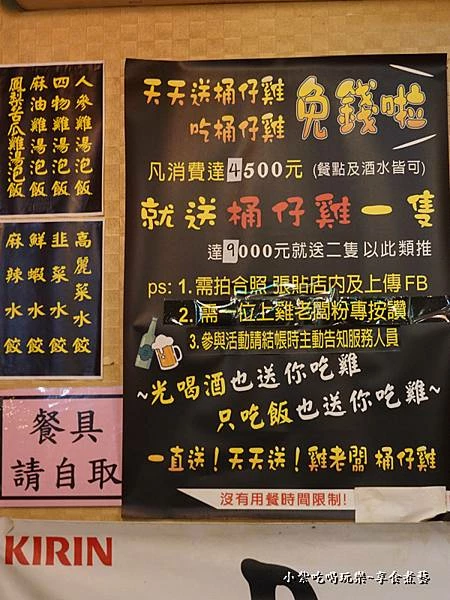 人參雞湯泡飯
四物雞湯泡飯
麻油雞湯泡飯
鳳梨苦瓜雞湯泡飯
高麗菜水餃
韭菜水餃
鮮蝦水餃
麻辣水餃
餐具
請自取
天天送桶仔雞
吃桶仔雞
免錢啦
凡消費達4500元 (餐點及酒水皆可)
就送桶仔雞一隻
達9000元就送二隻以此類推
ps: 1.需拍合照 張貼店內及上傳FB
2.需一位上雞老闆粉專按讚
3.參與活動請結帳時主動告知服務人員
~光喝酒也送你吃雞
只吃飯也送你吃雞~
一直送！天天送！雞老闆 桶仔雞
沒有用餐時間限制!
KIRIN
小紫吃喝玩樂~享食煮藝